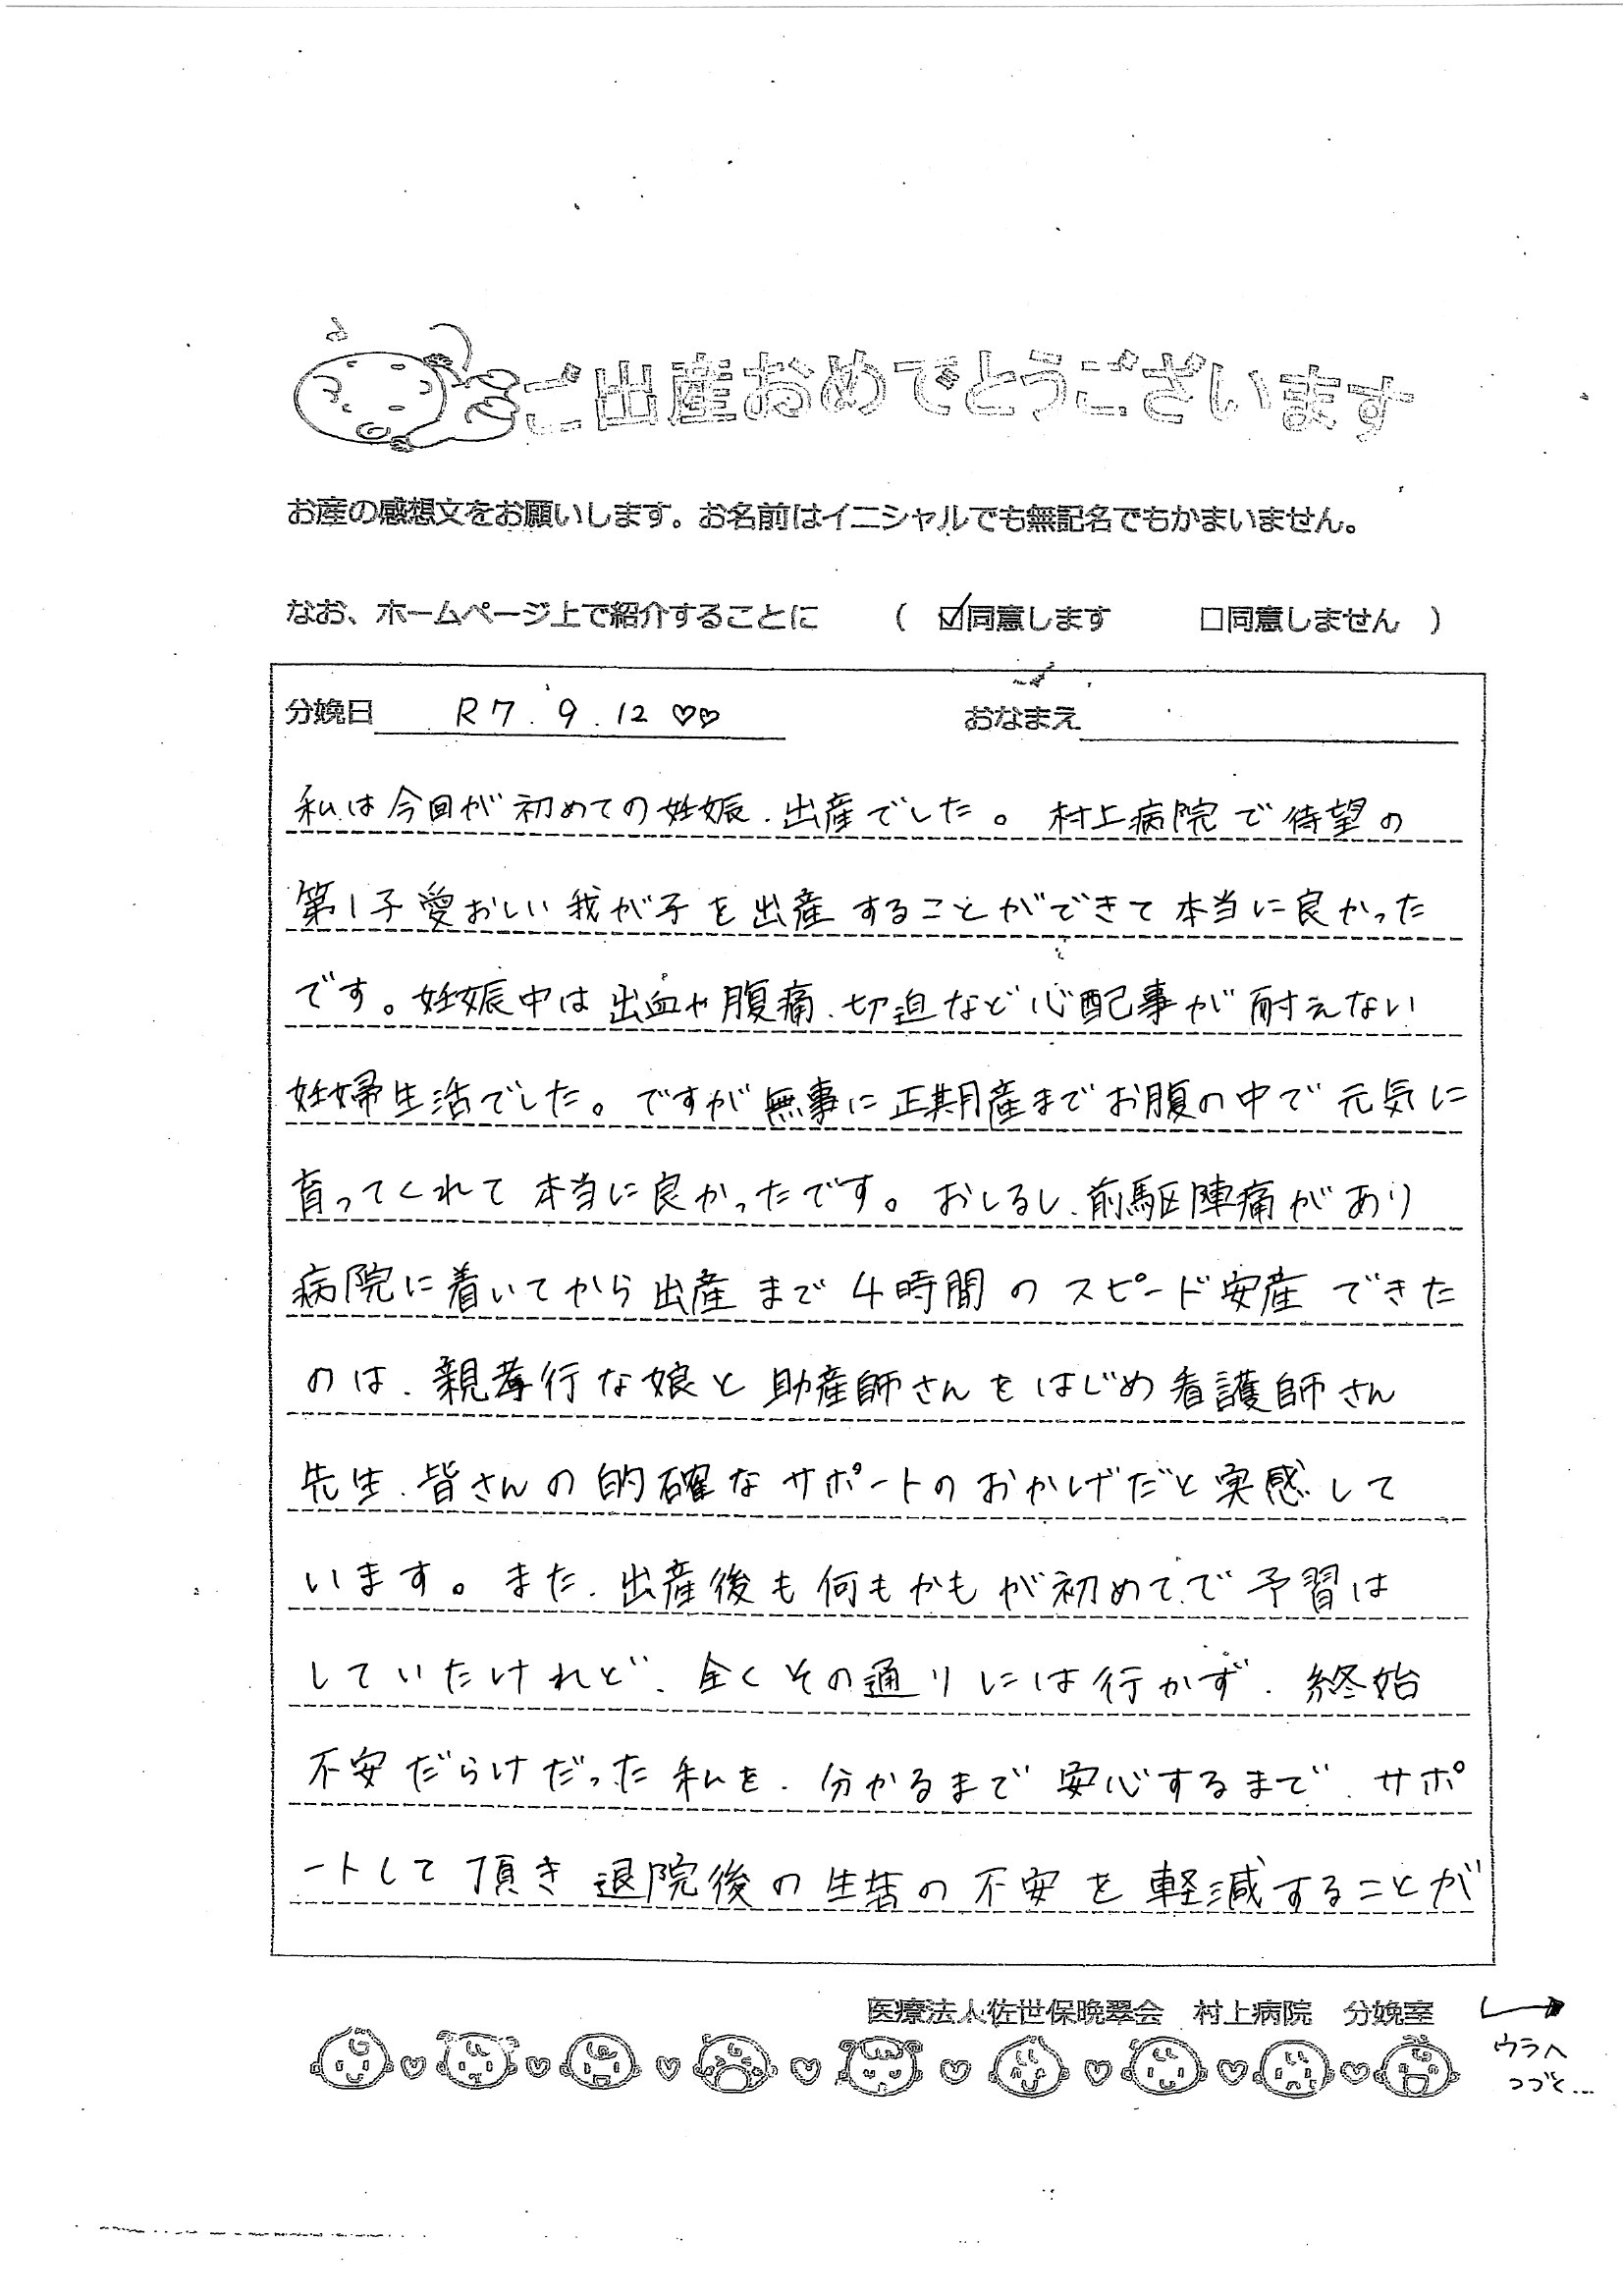 ご出産おめでとうございます
お産の感想文をお願いします。お名前はイニシャルでも無記名でもかまいません。
なお、ホームページ上で紹介することに （ ☑同意します □同意しません ）
分娩日 R7.9.12♡♡ おなまえ
私は今回が初めての妊娠、出産でした。村上病院で待望の
第1子愛おしい我が子を出産することができて本当に良かった
です。妊娠中は出血や腹痛、切迫など心配事が耐えない
妊婦生活でした。ですが無事に正期産までお腹の中で元気に
育ってくれて本当に良かったです。おしるし、前駆陣痛があり
病院に着いてから出産まで4時間のスピード安産できた
のは、親孝行な娘と助産師さんをはじめ看護師さん
先生、皆さんの的確なサポートのおかげだと実感して
います。また、出産後も何もかもが初めてで予習は
していたけれど、全くその通りには行かず、終始
不安だらけだった私を、分かるまで安心するまで、サポ
ートして頂き退院後の生活の不安を軽減することが
医療法人佐世保晩翠会 村上病院 分娩室
ウラへ
つづく...